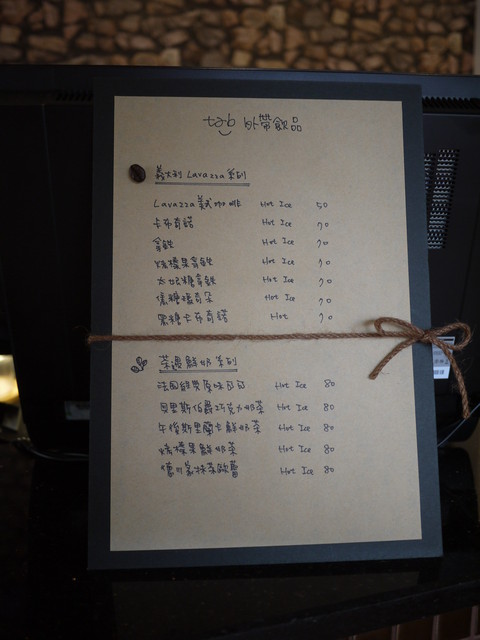 tab 外帶飲品
義大利 Lavazza 系列
Lavazza 義式咖啡 Hot Ice 50
卡布奇諾 Hot Ice 70
拿鐵 Hot Ice 70
榛果拿鐵 Hot Ice 70
太妃糖拿鐵 Hot Ice 70
焦糖瑪奇朵 Hot Ice 70
黑糖卡布奇諾 Hot 70
茶邊鮮奶系列
法國 原味 Hot Ice 80
貝里斯伯爵巧克力奶茶 Hot Ice 80
午後斯里蘭卡鮮奶茶 Hot Ice 80
榛果鮮奶茶 Hot Ice 80
抹茶歐蕾 Hot Ice 80